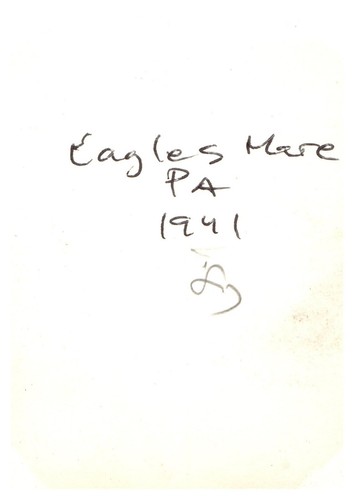 Eagles Mare
PA
1941